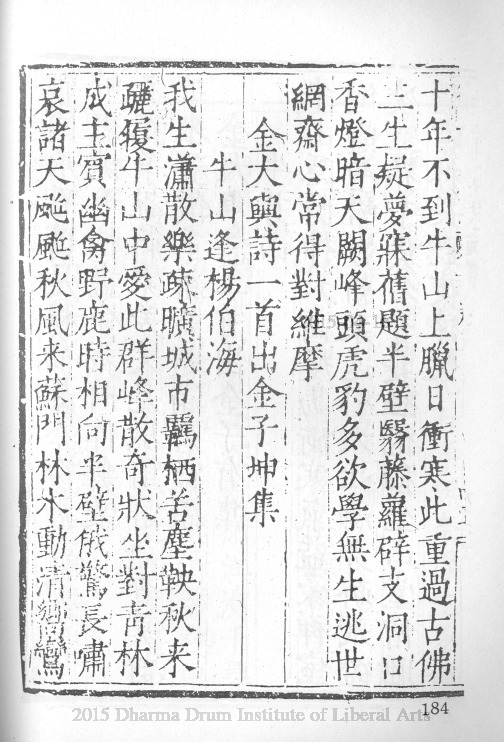 十年不到牛山上臘日衝寒此重過古佛
三生疑夢寐舊題半壁翳藤蘿辟支洞口
香燈暗天闕峰頭虎豹多欲學無生逃世
網齋心常得對維摩
金大輿詩一首出金子坤集
牛山逢楊伯海
我生瀟散樂疎曠城市羈栖苦塵鞅秋来
躧履牛山中愛此群峰散奇狀坐對青林
成主賓幽禽野鹿時相向半壁俄驚長嘯
哀諸天颯颯秋風来蘇門林木動清響鸞
184
2015 Dharma Drum Institute of Liberal Arts